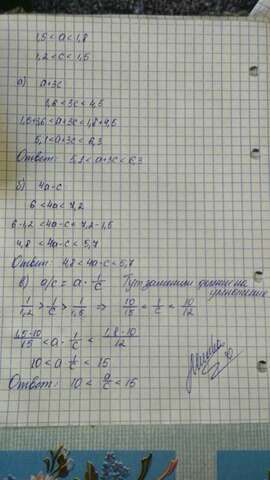 1,5 < a < 1,8
1,2 < c < 1,5
а) a+3c
3,6 < 3c < 4,5
1,5+3,6 < a+3c < 1,8+4,5
5,1 < a+3c < 6,3
Ответ: 5,1 < a+3c < 6,3
б) 4a-c
6 < 4a < 7,2
6-1,2 < 4a-c < 7,2-1,5
4,8 < 4a-c < 5,7
Ответ: 4,8 < 4a-c < 5,7
в) a/c = a · 1/c Тут заменили деление на умножение
1/1,2 > 1/c > 1/1,5 ⇒ 10/15 < 1/c < 10/12
1,5·10/15 < a · 1/c < 1,8·10/12
10 < a · 1/c < 15
Ответ: 10 < a/c < 15